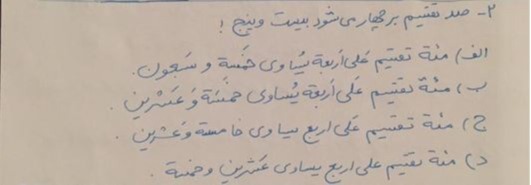 ۲- صد تقسیم بر چهار می شود بیست و پنج !
الف) مئة تقسیم عَلی أربعة یُساوی خَمسَة و سَبعون.
ب) مئة تقسیم عَلی أربعة یُساوی خمسَة وَ عَشرین.
ج) مئة تقسیم عَلی اربع یساوی خامسة وَ عشرین.
د) مئة تقسیم علی اربع یساوی عَشرین و خمسة.